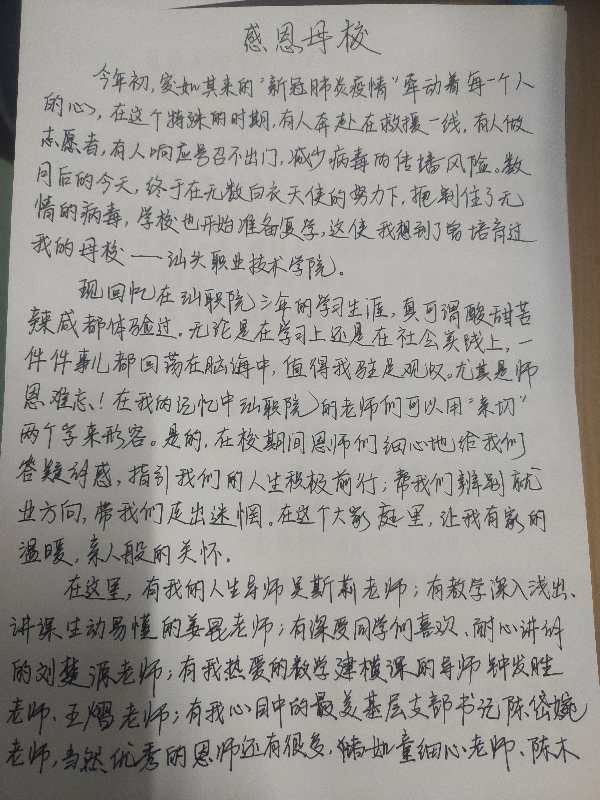 感恩母校
今年初,突如其来的“新冠肺炎疫情”牵动着每一个人
的心,在这个特殊的时期,有人奔赴在救援一线,有人做
志愿者,有人响应号召不出门,减少病毒的传播风险。数
月后的今天,终于在无数白衣天使的努力下,扼制住了无
情的病毒,学校也开始准备复学,这使我想到了曾培育过
我的母校——汕头职业技术学院。
现回忆在汕职院三年的学习生涯,真可谓酸甜苦
辣咸都体验过。无论是在学习上还是在社会实践上,一
件件事儿都回荡在脑海中,值得我驻足观叹。尤其是师
恩难忘!在我的记忆中汕职院的老师们可以用“亲切”
两个字来形容。是的,在校期间恩师们细心地给我们
答疑解惑,指引我们的人生积极前行;帮我们辨别就
业方向,带我们走出迷惘。在这个大家庭里,让我有家的
温暖,亲人般的关怀。
在这里,有我的人生导师吴斯莉老师;有教学深入浅出、
讲课生动易懂的姜昆老师;有深受同学们喜欢、耐心讲解
的刘楚源老师;有我热爱的数学建模课的导师钟发胜
老师、王熠老师;有我心目中的最美基层支部书记陈岱婉
老师,当然优秀的恩师还有很多,诸如童细心老师、陈木